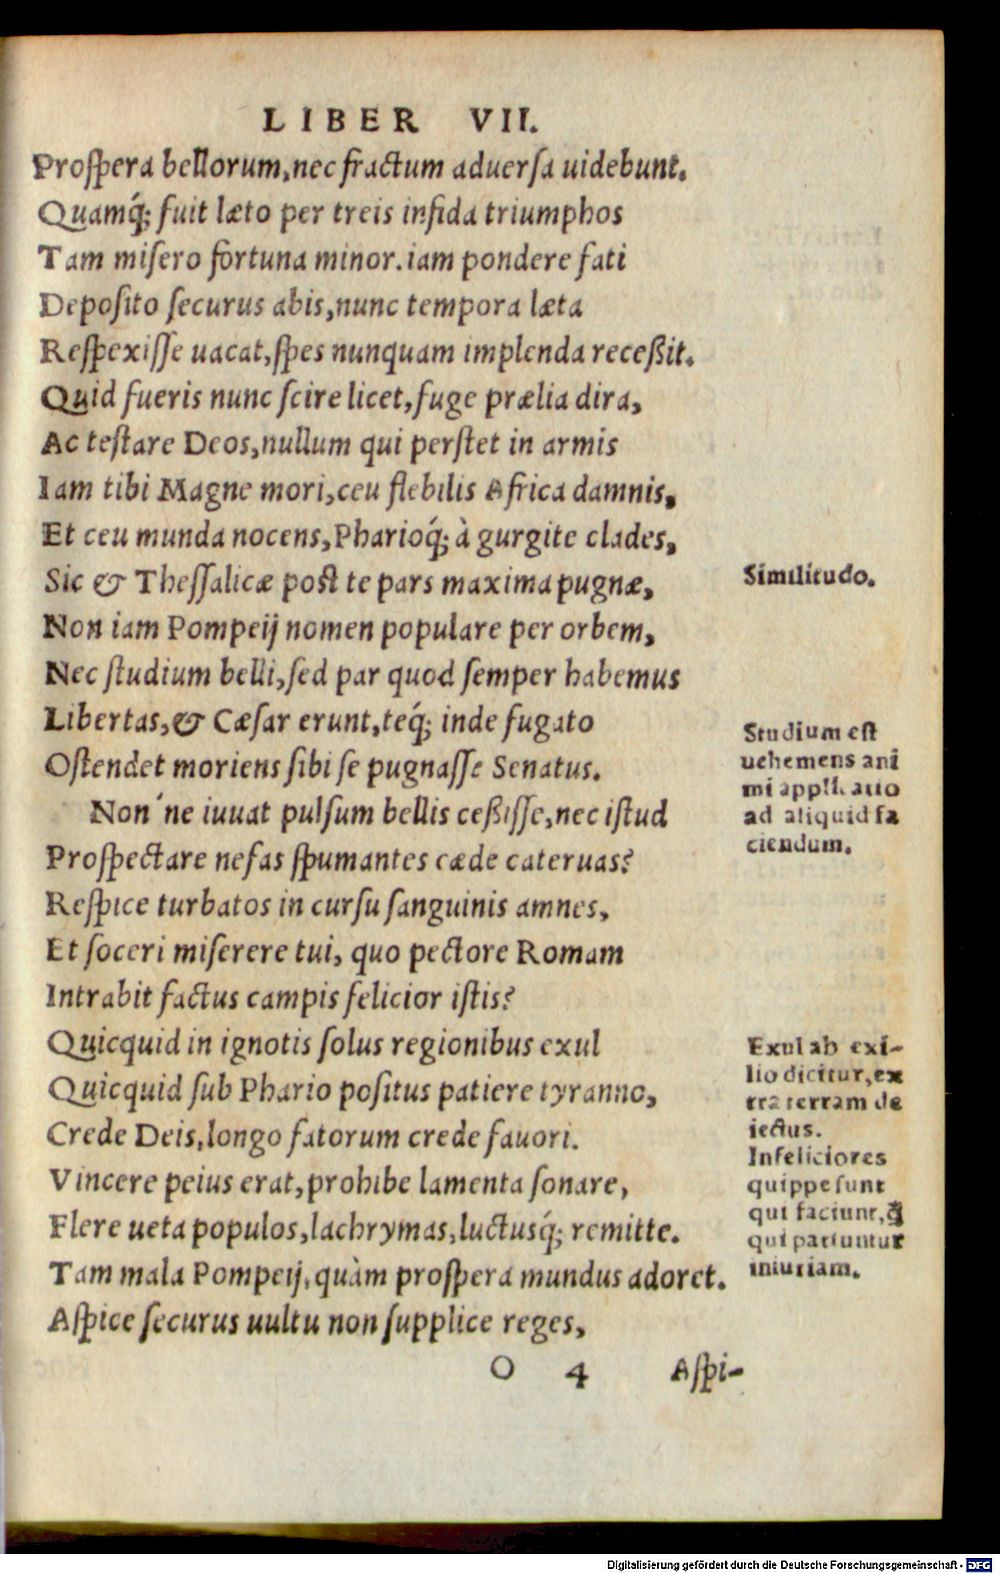 LIBER VII.
Prospera bellorum, nec fractum aduersa uidebunt.
Quamq́; fuit læto per treis infida triumphos
Tam misero fortuna minor. iam pondere fati
Deposito securus abis, nunc tempora læta
Respexisse uacat, spes nunquam implenda receßit.
Quid fueris nunc scire licet, fuge prælia dira,
Ac testare Deos, nullum qui perstet in armis
Iam tibi Magne mori, ceu flebilis Africa damnis,
Et ceu munda nocens, Pharioq́; à gurgite clades,
Sic & Thessalicæ post te pars maxima pugnæ,
Non iam Pompeij nomen populare per orbem,
Nec studium belli, sed par quod semper habemus
Libertas, & Cæsar erunt, teq́; inde fugato
Ostendet moriens sibi se pugnasse Senatus.
Non´ne iuuat pulsum bellis ceßisse, nec istud
Prospectare nefas spumantes cæde cateruas?
Respice turbatos in cursu sanguinis amnes,
Et soceri miserere tui, quo pectore Romam
Intrabit factus campis felicior istis?
Quicquid in ignotis solus regionibus exul
Quicquid sub Phario positus patiere tyranno,
Crede Deis, longo fatorum crede fauori.
Vincere peius erat, prohibe lamenta sonare,
Flere ueta populos, lachrymas, luctusq́; remitte.
Tam mala Pompeij, quàm prospera mundus adoret.
Aspice securus uultu non supplice reges,
O 4 Aspi-
Similitudo.
Studium est
uehemens ani
mi applicatio
ad aliquid fa
ciendum.
Exul ab exi-
lio dicitur, ex
tra terram de
iectus.
Infeliciores
quippe sunt
qui faciunt, q̃
qui patiuntur
iniuriam.
Digitalisierung gefördert durch die Deutsche Forschungsgemeinschaft - DFG